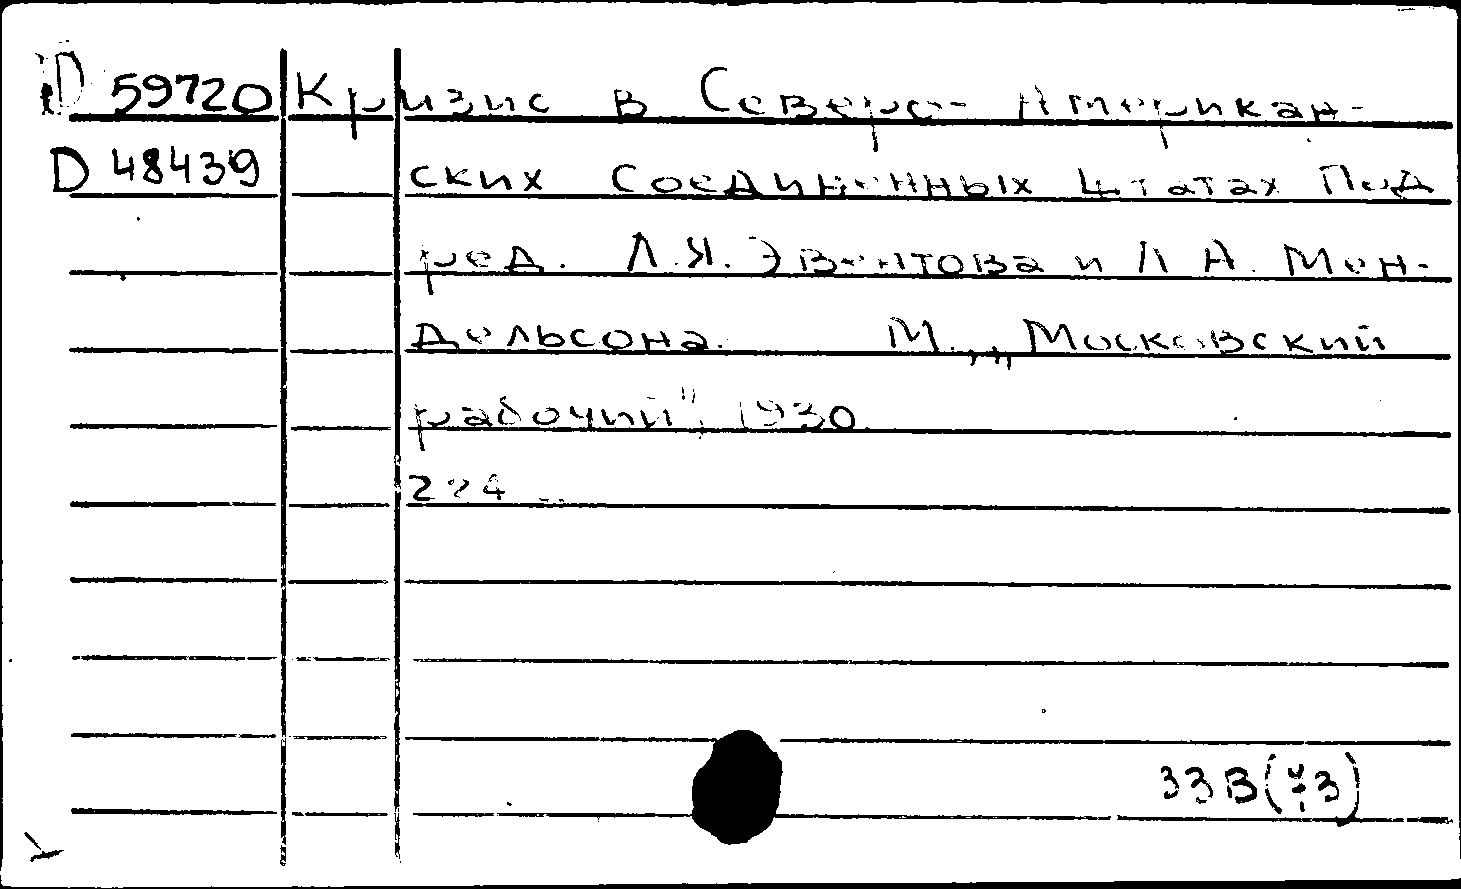 D 59720 Кризис в Северо-Американ-
D 48439 ских Соединенных Штатах Под
ред. Л.Я. Эвентова и Л А. Мен-
дельсона. М., „Московский
рабочий", 1930.
224
33В(73)